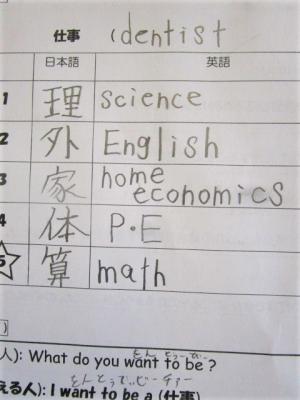 仕事 (dentist
日本語 英語
1 理 science
2 外 English
3 家 home
economics
4 体 P・E
5 算 math
人): What do you want to be ?
える人): I want to be a (仕事)